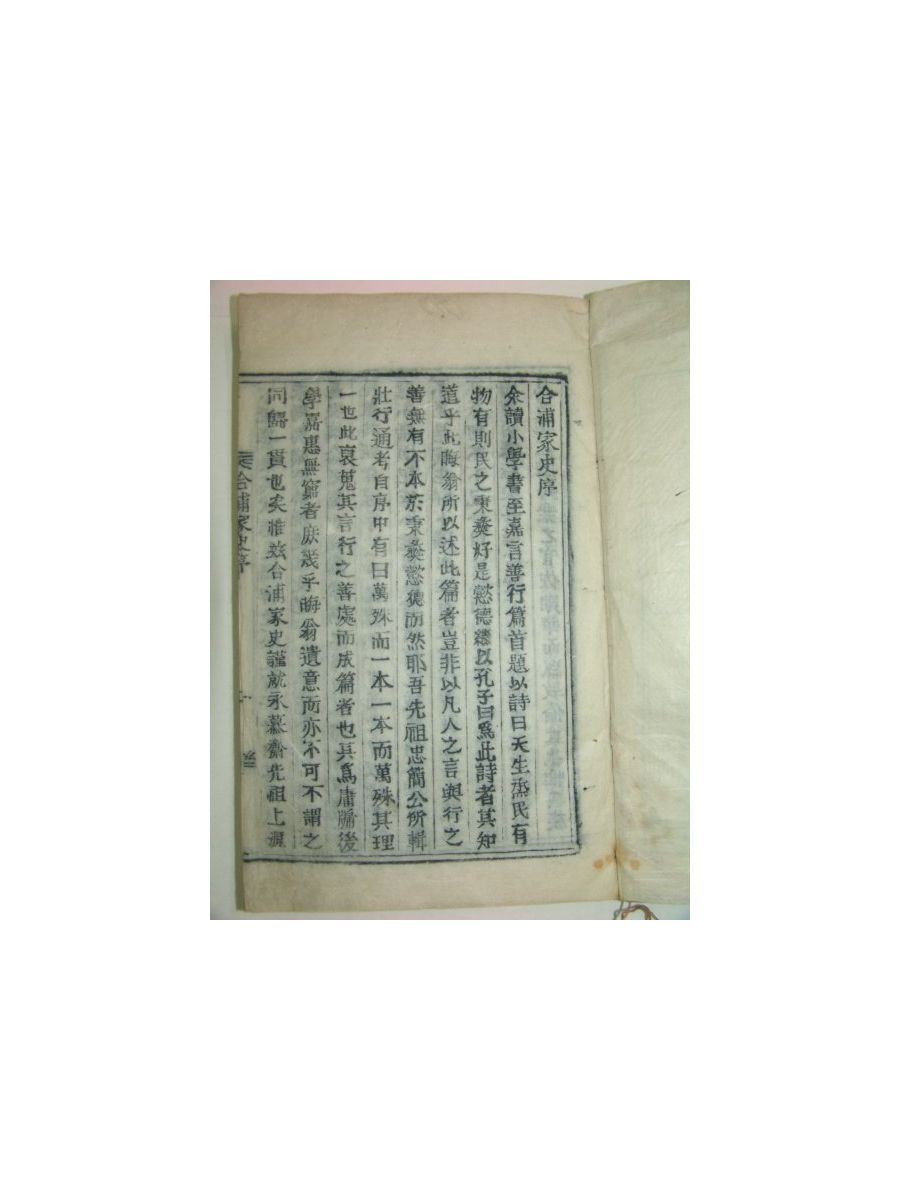 合浦家史序
余讀小學書至嘉言善行篇首題以詩曰天生烝民有
物有則民之秉彝好是懿德繼以孔子曰爲此詩者其知
道乎此晦翁所以述此篇者豈非以凡人之言與行之
善無有不本於秉彝懿德而然耶吾先祖忠簡公所輯
壯行通考自序中有曰萬殊而一本一本而萬殊其理
一也此裒蒐其言行之善處而成篇者也其爲牖後
學嘉惠無窮者庶幾乎晦翁遺意而亦不可不謂之
同歸一貫也矣惟玆合浦家史謹就永慕齋先祖上源
合浦家史序